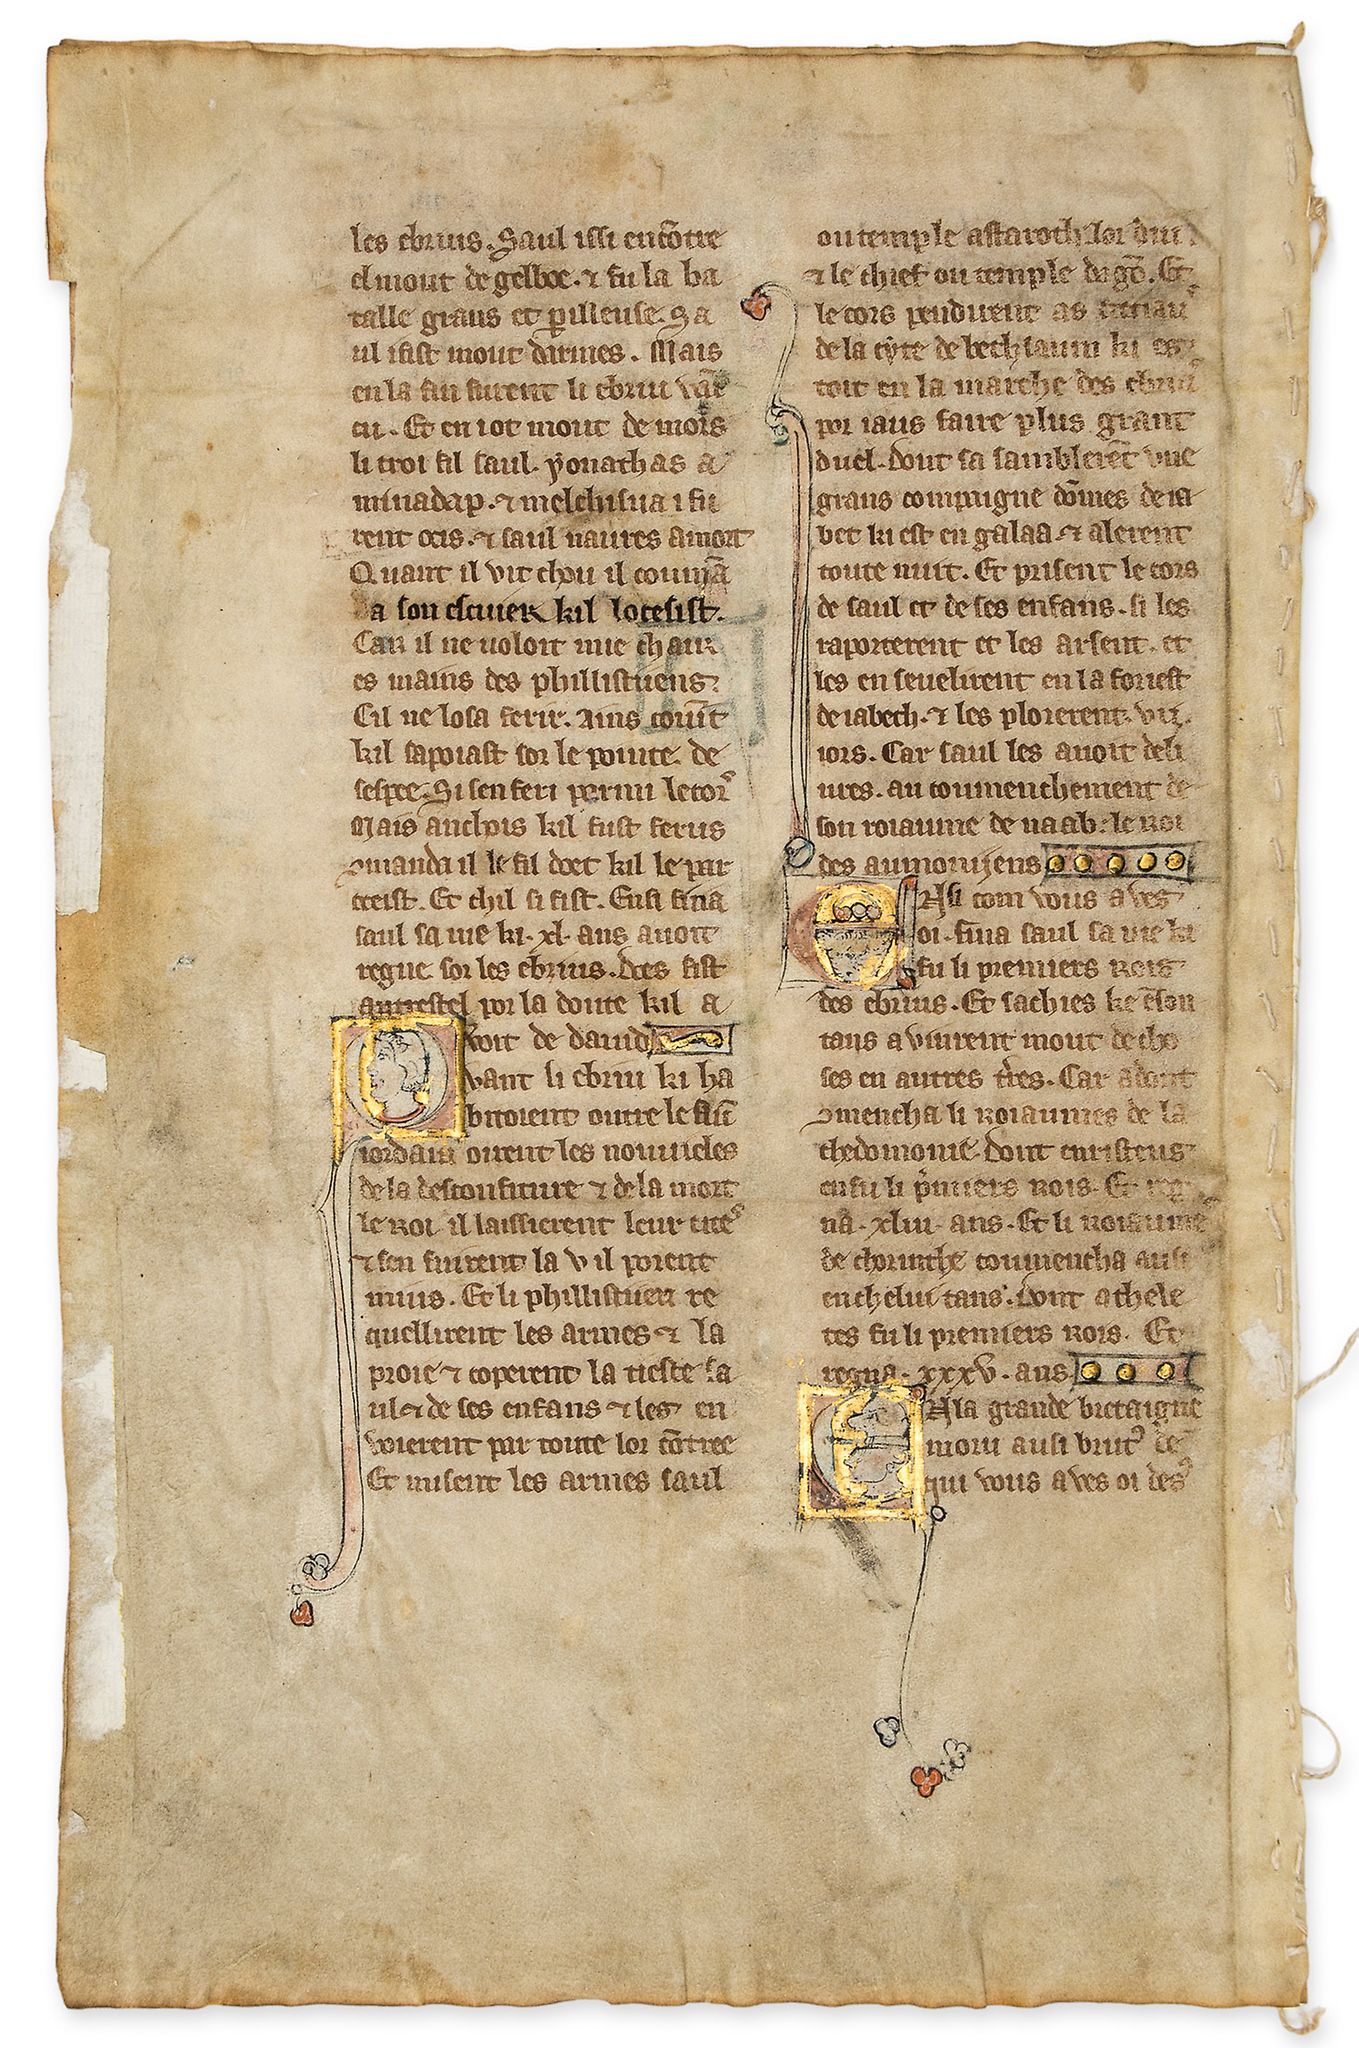 les ebrius. Saul issi encõtre
el mont de gelboe. ⁊ fu la ba
talle grans et perilleuse. Sa
ul i fist mout darmes. Mais
en la fin furent li ebriu vaī
cu. Et en i ot mout de mors
li troi fil saul. ẏonathas a
minadap. ⁊ melchisua i fu
rent ocis. ⁊ saul naures a mort
Quant il vit chou il commā
da son escuier kil locesist.
Car il ne voloit mie chair
es mains des phillistiiens.
Cil ne losa ferir. Ains couīt
kil sapoiast sor le pointe de
sespee. Si sen feri parmi le cors
Mais anchois kil fust ferus
ꝯmanda il le fil doec kil le par
tuast. Et chil si fist. Ensi fina
saul sa vie ki .xl. ans avoit
regne sor les ebrius. does fist
autrestel por la doute kil a
voit de david
Quant li ebriu ki ha
bitoient outre le flūc
iordain oirent les nouveles
de la desconfiture ⁊ de la mort
le Roi il laissierent leur cites
⁊ sen fuirent la v il porent
mius. Et li phillistiien re
quellirent les armes ⁊ la
proie ⁊ coperent la tieste sa
ul ⁊ de ses enfans ⁊ les en
voierent par toute lor cõtree
Et misent les armes saul
ou temple astaroth lor diu.
⁊ le chief ou temple dagō. Et
le cors pendirent as
de la cẏte de bethsaum ki es
toit en la marche des ebrius
por iaus faire plus grant
duel. dont sa samblerēt une
grans compaigne dōmes de ia
bet ki est en galaa. ⁊ alerent
toute nuit. Et prisent le cors
de saul et de ses enfans. si les
raporterent et les arsent. et
les en sevelirent en la foriest
de iabech. ⁊ les plorerent .vii.
iors. Car saul les avoit deli
vres. au coumenchement de
son roiaume de naab. le roi
des aumonijens
EAsi com vous aves
oi. fina saul sa vie ki
fu li premiers rois
des ebrius. Et sachies ke ē son
tans avinrent mout de cho
ses en autres tr̃es. Car adont
ꝯmencha li roiaumes de la
chedomonie. dont euristeus
en fu li p̃miers rois. Et reg
na .xliii. ans. Et li roiaume
de chorinthe coumencha ausi
en chelui tans. Dont athele
tes fu li premiers rois. Et
regna .xxxv. ans
EN la grande bretaigne
moru ausi brut9 de
qui vous aves oi des9